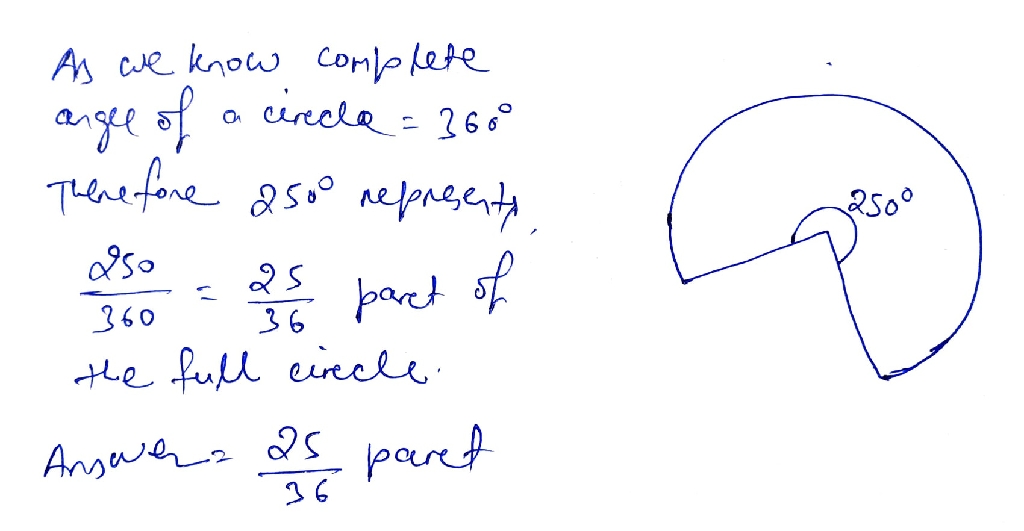 As we know complete
angle of a circle = 360°
Therefore 250° represents,
250/360 = 25/36 part of
the full circle.
Answer = 25/36 part
250°